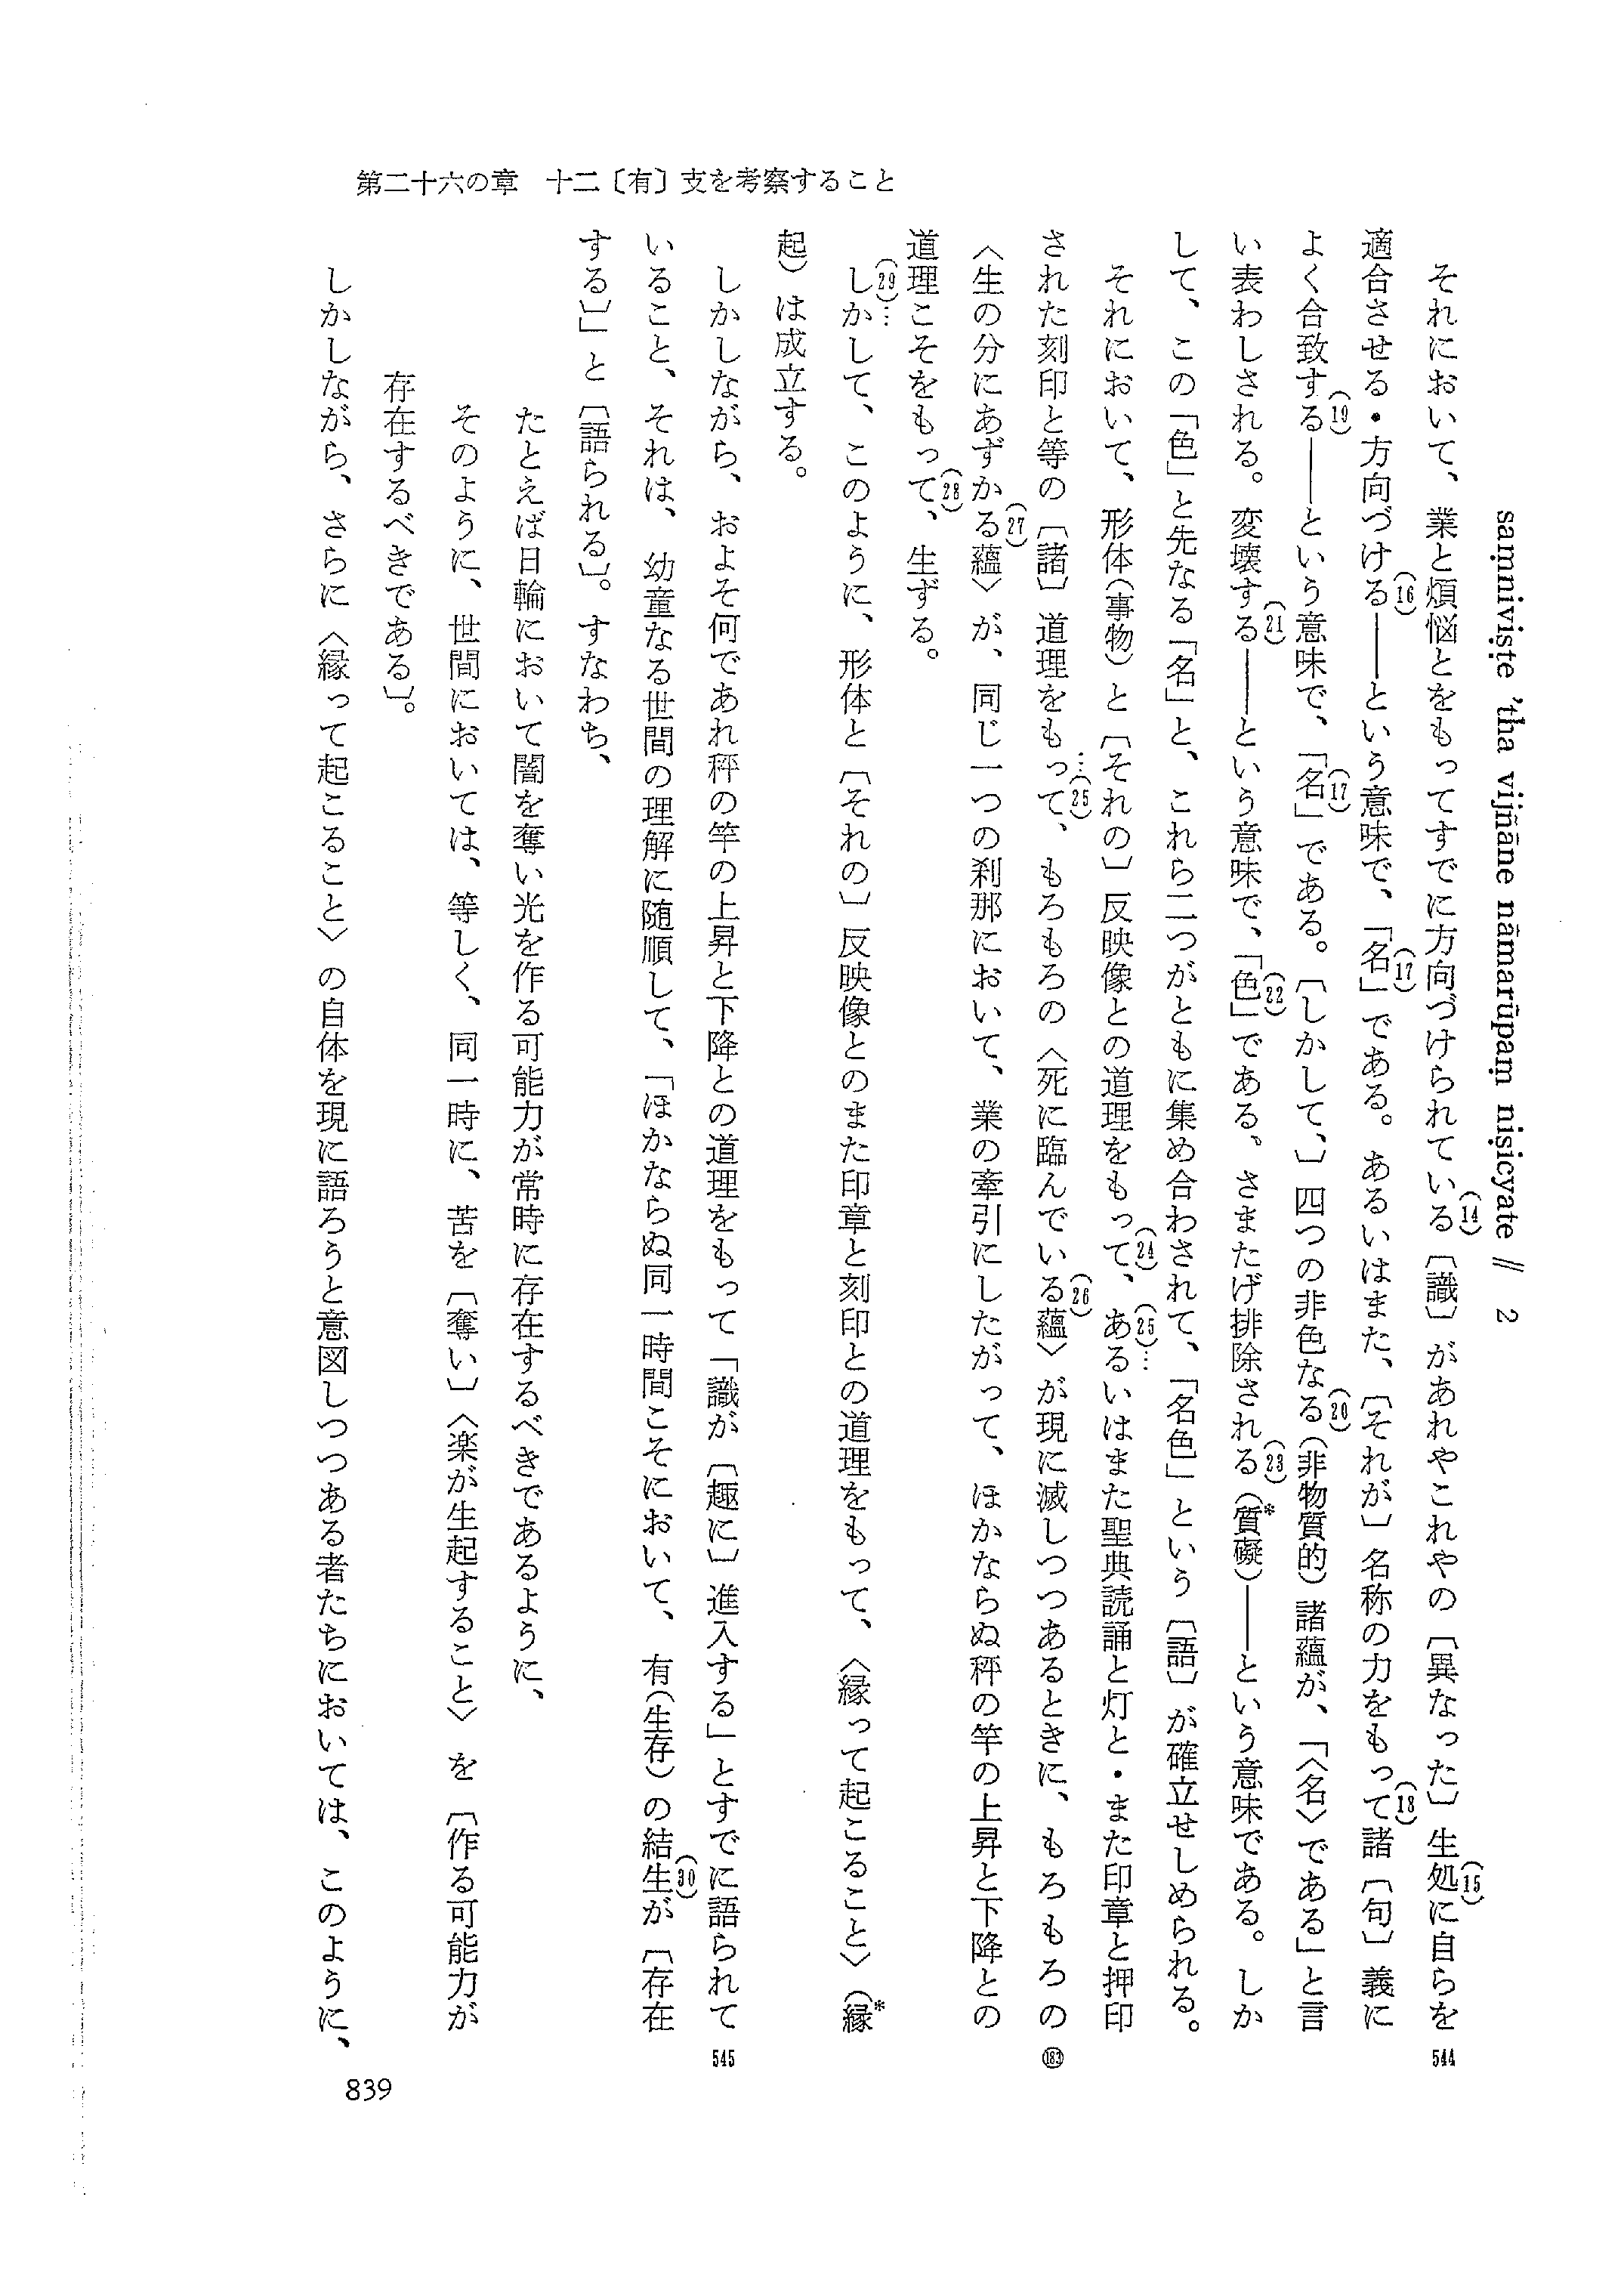 第二十六の章　十二〔有〕支を考察すること
saṃniviṣṭe 'tha vijñāne nāmarūpaṃ niṣicyate // 2
それにおいて、業と煩悩とをもってすでに方向づけられている(14)〔識〕があれやこれやの〔異なった〕生処(15)に自らを 544
適合させる・方向づける(16)――という意味で、「名(17)」である。あるいはまた、〔それが〕名称の力をもって(18)諸〔句〕義に
よく合致する(19)――という意味で、「名(17)」である。〔しかして、〕四つの非色なる(20)(非物質的)諸蘊が、「〈名〉である」と言
い表わしされる。変壊する(21)――という意味で、「色(22)」である。さまたげ排除される(23)(質礙*)――という意味である。しか
して、この「色」と先なる「名」と、これら二つがともに集め合わされて、「名色」という〔語〕が確立せしめられる。
それにおいて、形体(事物)と〔それの〕反映像との道理をもって(24)、(25)…あるいはまた聖典読誦と灯と・また印章と押印
された刻印と等の〔諸〕道理をもって…(25)、もろもろの〈死に臨んでいる(26)蘊〉が現に滅しつつあるときに、もろもろの ⑱³
〈生の分にあずかる(27)蘊〉が、同じ一つの刹那において、業の牽引にしたがって、ほかならぬ秤の竿の上昇と下降との
道理こそをもって(28)、生ずる。
(29)…しかして、このように、形体と〔それの〕反映像とのまた印章と刻印との道理をもって、〈縁って起こること〉(縁*
起)は成立する。
しかしながら、およそ何であれ秤の竿の上昇と下降との道理をもって「識が〔趣に〕進入する」とすでに語られて 545
いること、それは、幼童なる世間の理解に随順して、「ほかならぬ同一時間こそにおいて、有(生存)の結生(30)が〔存在
する〕」と〔語られる〕。すなわち、
たとえば日輪において闇を奪い光を作る可能力が常時に存在するべきであるように、
そのように、世間においては、等しく、同一時に、苦を〔奪い〕〈楽が生起すること〉を〔作る可能力が
存在するべきである〕。
しかしながら、さらに〈縁って起こること〉の自体を現に語ろうと意図しつつある者たちにおいては、このように、
839